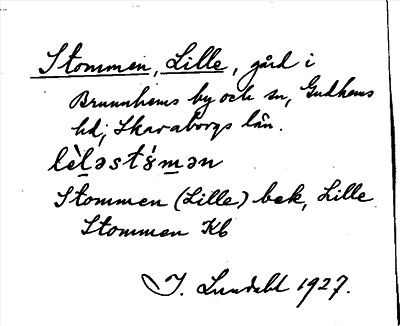 Stommen, Lille, gård i
Brunnhems by och sn, Gudhems
hd, Skaraborgs län.
Stommen (Lille) bek, Lille
Stommen Kb
I. Lundahl 1927.